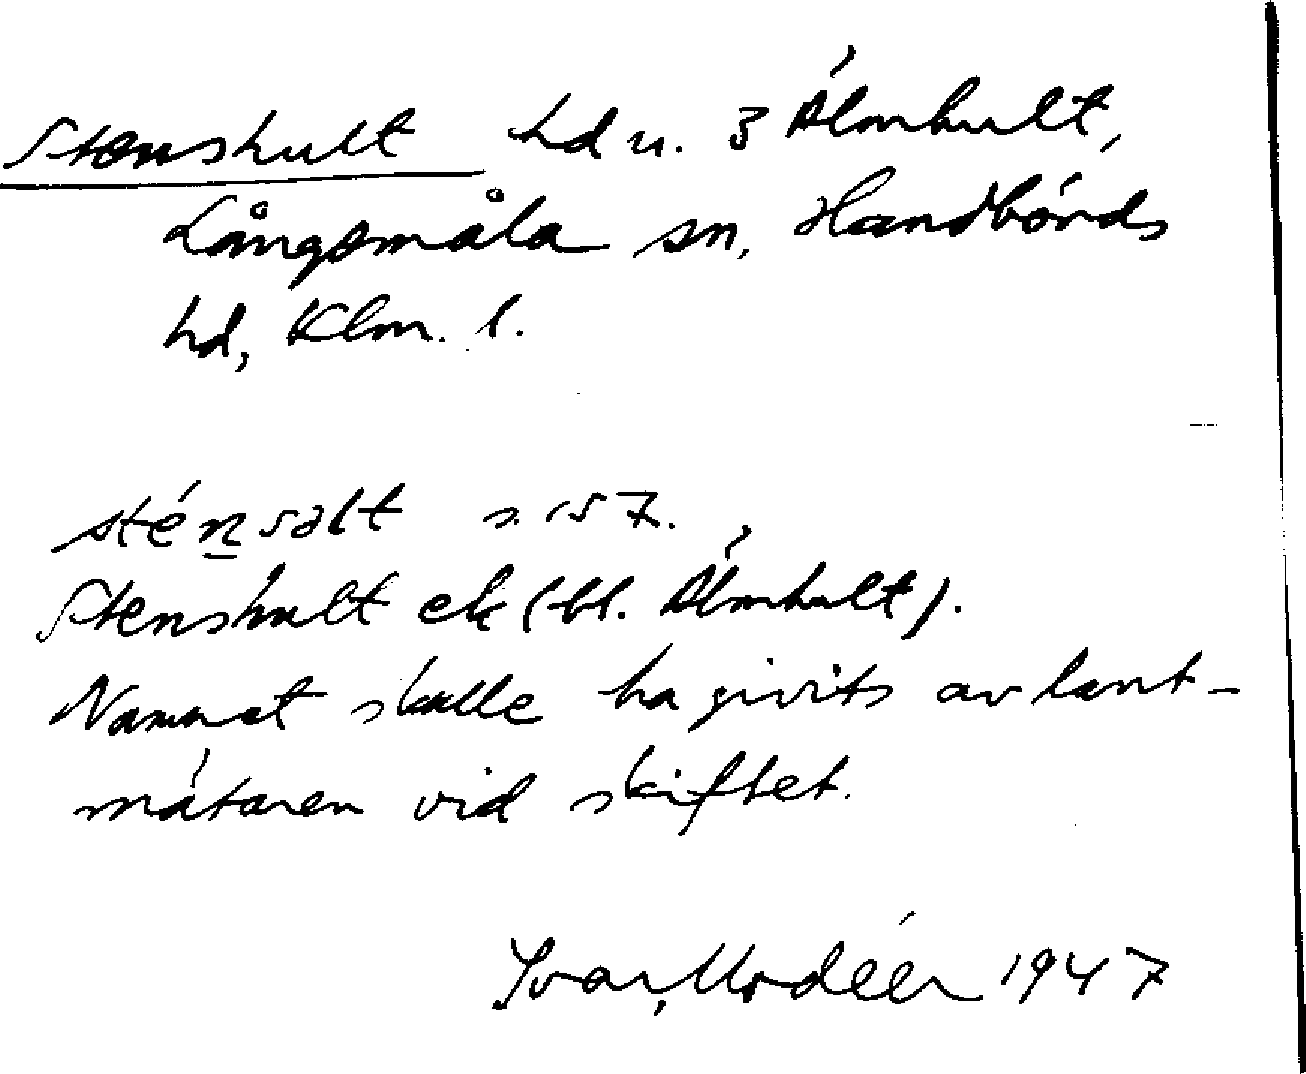 Stenshult hd u. 3 Älmhult,
Långemåla sn, Handbörds
hd, Klm. l.
sténsəlt s. 157.
Stenshult ek (bl. Älmhult).
Namnet skulle ha givits av lant-
mätaren vid skiftet.
Ivar Modéer 1947